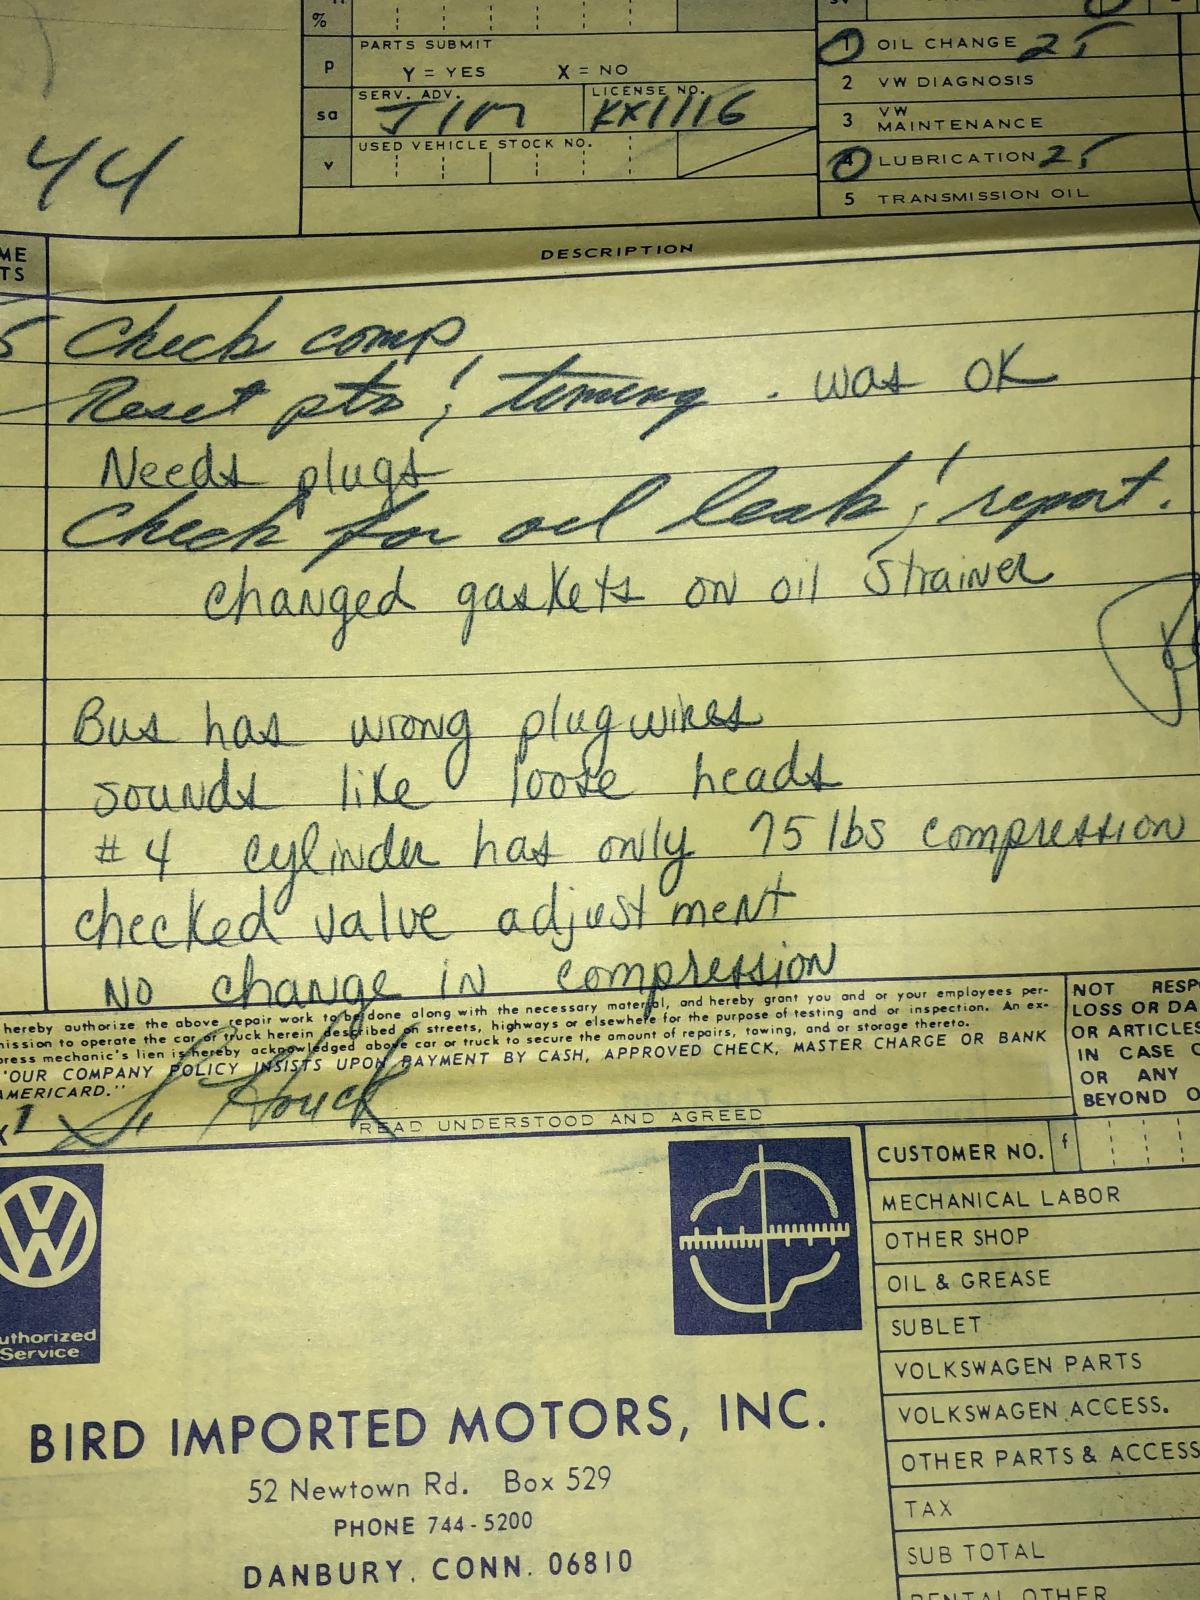 %
PARTS SUBMIT
p
Y = YES X = NO
SERV. ADV.
LICENSE NO.
sa
JIM
KX1116
USED VEHICLE STOCK NO.
v
1 OIL CHANGE 25
2 VW DIAGNOSIS
3 VW MAINTENANCE
4 LUBRICATION 25
5 TRANSMISSION OIL
44
ME
TS
DESCRIPTION
5 Check comp
Reset pts & timing . was OK
Needs plugs
Check for oil leak & report.
changed gaskets on oil strainer
Bus has wrong plug wires
sounds like loose heads
#4 cylinder has only 75 lbs compression
checked valve adjustment
NO change in compression
hereby authorize the above repair work to be done along with the necessary material, and hereby grant you and or your employees per-
mission to operate the car or truck herein described on streets, highways or elsewhere for the purpose of testing and or inspection. An ex-
press mechanic's lien is hereby acknowledged above car or truck to secure the amount of repairs, towing, and or storage thereto.
"OUR COMPANY POLICY INSISTS UPON PAYMENT BY CASH, APPROVED CHECK, MASTER CHARGE OR BANK
AMERICARD."
X S. Houck
READ UNDERSTOOD AND AGREED
NOT RESP
LOSS OR DA
OR ARTICLES
IN CASE O
OR ANY
BEYOND O
VW
uthorized
Service
BIRD IMPORTED MOTORS, INC.
52 Newtown Rd. Box 529
PHONE 744-5200
DANBURY, CONN. 06810
CUSTOMER NO. f
MECHANICAL LABOR
OTHER SHOP
OIL & GREASE
SUBLET
VOLKSWAGEN PARTS
VOLKSWAGEN ACCESS.
OTHER PARTS & ACCESS
TAX
SUB TOTAL
RENTAL OTHER